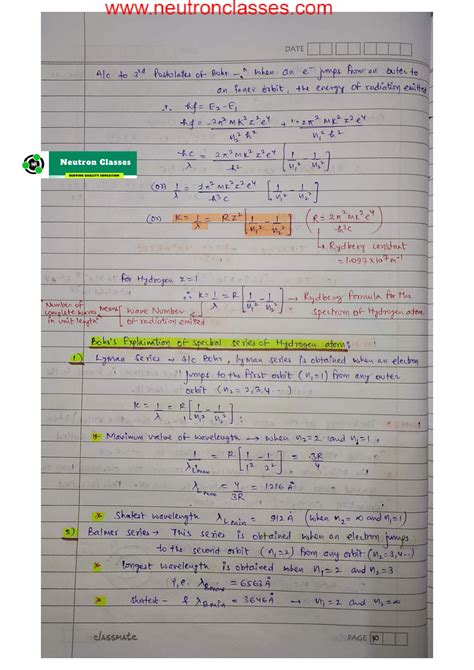 www.neutronclasses.com
DATE
A/c to 3rd Postulates of Bohr → " when an e⁻ jumps from an outer to
an inner orbit, the energy of radiation emitted
∴ hf = E₂ - E₁
hf = -2π²mK²z²e⁴/n₂²h² + 2π²mK²z²e⁴/n₁²h²
hc/λ = 2π²mK²z²e⁴/h² [1/n₁² - 1/n₂²]
Neutron Classes
SERVING QUALITY EDUCATION
(or) 1/λ = 2π²mK²z²e⁴/h³c [1/n₁² - 1/n₂²]
(or) K = 1/λ = RZ² [1/n₁² - 1/n₂²] (R = 2π²mK²e⁴/h³c)
↳ Rydberg constant
= 1.097×10⁷m⁻¹
for Hydrogen z=1
∴ K = 1/λ = R [1/n₁² - 1/n₂²] → Rydberg formula for the
spectrum of Hydrogen atom.
"Number of
complete waves
in unit length" means [wave Number
of radiation emitted
Bohr's Explaination of spectral series of Hydrogen atom:
1) Lyman Series → A/c Bohr, lyman series is obtained when an electron
jumps to the first orbit (n₁=1) from any outer
orbit (n₂=2,3,4....)
K = 1/λ = R [1/1 - 1/n₂²]
* Maximum value of wavelength → when n₂=2 and n₁=1.
1/λLmax = R [1/1² - 1/2²] = 3R/4
λLmax = 4/3R = 1216 Å
* Shotest wavelength λLmin = 912 Å (when n₂=∞ and n₁=1)
2) Balmer series → This series is obtained when an electron jumps
to the second orbit (n₁=2) from any orbit (n₂=3,4..)
* longest wavelength is obtained when n₁=2 and n₂=3
i.e. λBmax = 6563Å
* shotest - λBmin = 3646Å → n₁=2 and n₂=∞
classmate
PAGE 10